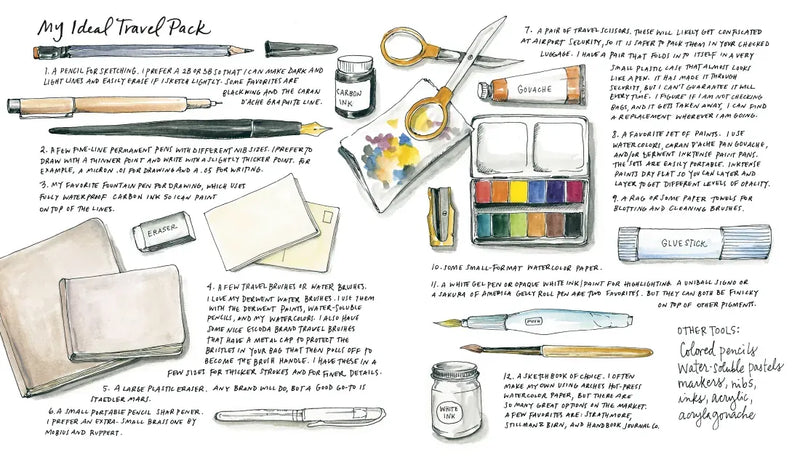 My Ideal Travel Pack
1. A PENCIL FOR SKETCHING. I PREFER A 2B OR 3B SO THAT I CAN MAKE DARK AND
LIGHT LINES AND EASILY ERASE IF I SKETCH LIGHTLY. SOME FAVORITES ARE
BLACKWING AND THE CARAN
D'ACHE GRAPHITE LINE.
CARBON
INK
2. A FEW FINE-LINE PERMANENT PENS WITH DIFFERENT NIB SIZES. I PREFER TO
DRAW WITH A THINNER POINT AND WRITE WITH A SLIGHTLY THICKER POINT. FOR
EXAMPLE, A MICRON .01 FOR DRAWING AND A .05 FOR WRITING.
3. MY FAVORITE FOUNTAIN PEN FOR DRAWING, WHICH USES
FULLY WATERPROOF CARBON INK SO I CAN PAINT
ON TOP OF THE LINES.
ERASER
4. A FEW TRAVEL BRUSHES OR WATER BRUSHES.
I LOVE MY DERWENT WATER BRUSHES. I USE THEM
WITH THE DERWENT PAINTS, WATER-SOLUBLE
PENCILS, AND MY WATERCOLORS. I ALSO HAVE
SOME NICE ESCODA BRAND TRAVEL BRUSHES
THAT HAVE A METAL CAP TO PROTECT THE
BRISTLES IN YOUR BAG THAT THEN PULLS OFF TO
BECOME THE BRUSH HANDLE. I HAVE THESE IN A
FEW SIZES FOR THICKER STROKES AND FOR FINER DETAILS.
5. A LARGE PLASTIC ERASER. ANY BRAND WILL DO, BUT A GOOD GO-TO IS
STAEDLER MARS.
6. A SMALL PORTABLE PENCIL SHARPENER.
I PREFER AN EXTRA-SMALL BRASS ONE BY
MOBIUS AND RUPPERT.
7. A PAIR OF TRAVEL SCISSORS. THESE WILL LIKELY GET CONFISCATED
AT AIRPORT SECURITY, SO IT IS SAFER TO PACK THEM IN YOUR CHECKED
LUGGAGE. I HAVE A PAIR THAT FOLDS IN TO ITSELF IN A VERY
SMALL PLASTIC CASE THAT ALMOST LOOKS
LIKE A PEN. IT HAS MADE IT THROUGH
SECURITY, BUT I CAN'T GUARANTEE IT WILL
EVERY TIME. I FIGURE IF I AM NOT CHECKING
BAGS, AND IT GETS TAKEN AWAY, I CAN FIND
A REPLACEMENT WHEREVER I AM GOING.
GOUACHE
8. A FAVORITE SET OF PAINTS. I USE
WATERCOLORS, CARAN D'ACHE PAN GOUACHE,
AND/OR DERWENT INKTENSE PAINT PANS.
THE SETS ARE EASILY PORTABLE. INKTENSE
PAINTS DAY FLAT SO YOU CAN LAYER AND
LAYER TO GET DIFFERENT LEVELS OF OPACITY.
9. A RAG OR SOME PAPER TOWELS FOR
BLOTTING AND CLEANING BRUSHES.
GLUE STICK
10. SOME SMALL-FORMAT WATERCOLOR PAPER.
11. A WHITE GEL PEN OR OPAQUE WHITE INK/PAINT FOR HIGHLIGHTING. A UNIBALL SIGNO OR
A SAKURA OF AMERICA GELLY ROLL PEN ARE TWO FAVORITES. BUT THEY CAN BOTH BE FINICKY
ON TOP OF OTHER PIGMENTS.
PUSH
WHITE
INK
12. A SKETCHBOOK OF CHOICE. I OFTEN
MAKE MY OWN USING ARCHES HOT-PRESS
WATERCOLOR PAPER, BUT THERE ARE
SO MANY GREAT OPTIONS ON THE MARKET.
A FEW FAVORITES ARE: STRATHMORE,
STILLMAN & BIRN, AND HANDBOOK JOURNAL CO.
OTHER TOOLS:
Colored pencils
Water-soluble pastels
markers, nibs,
inks, acrylic,
acryla gouache